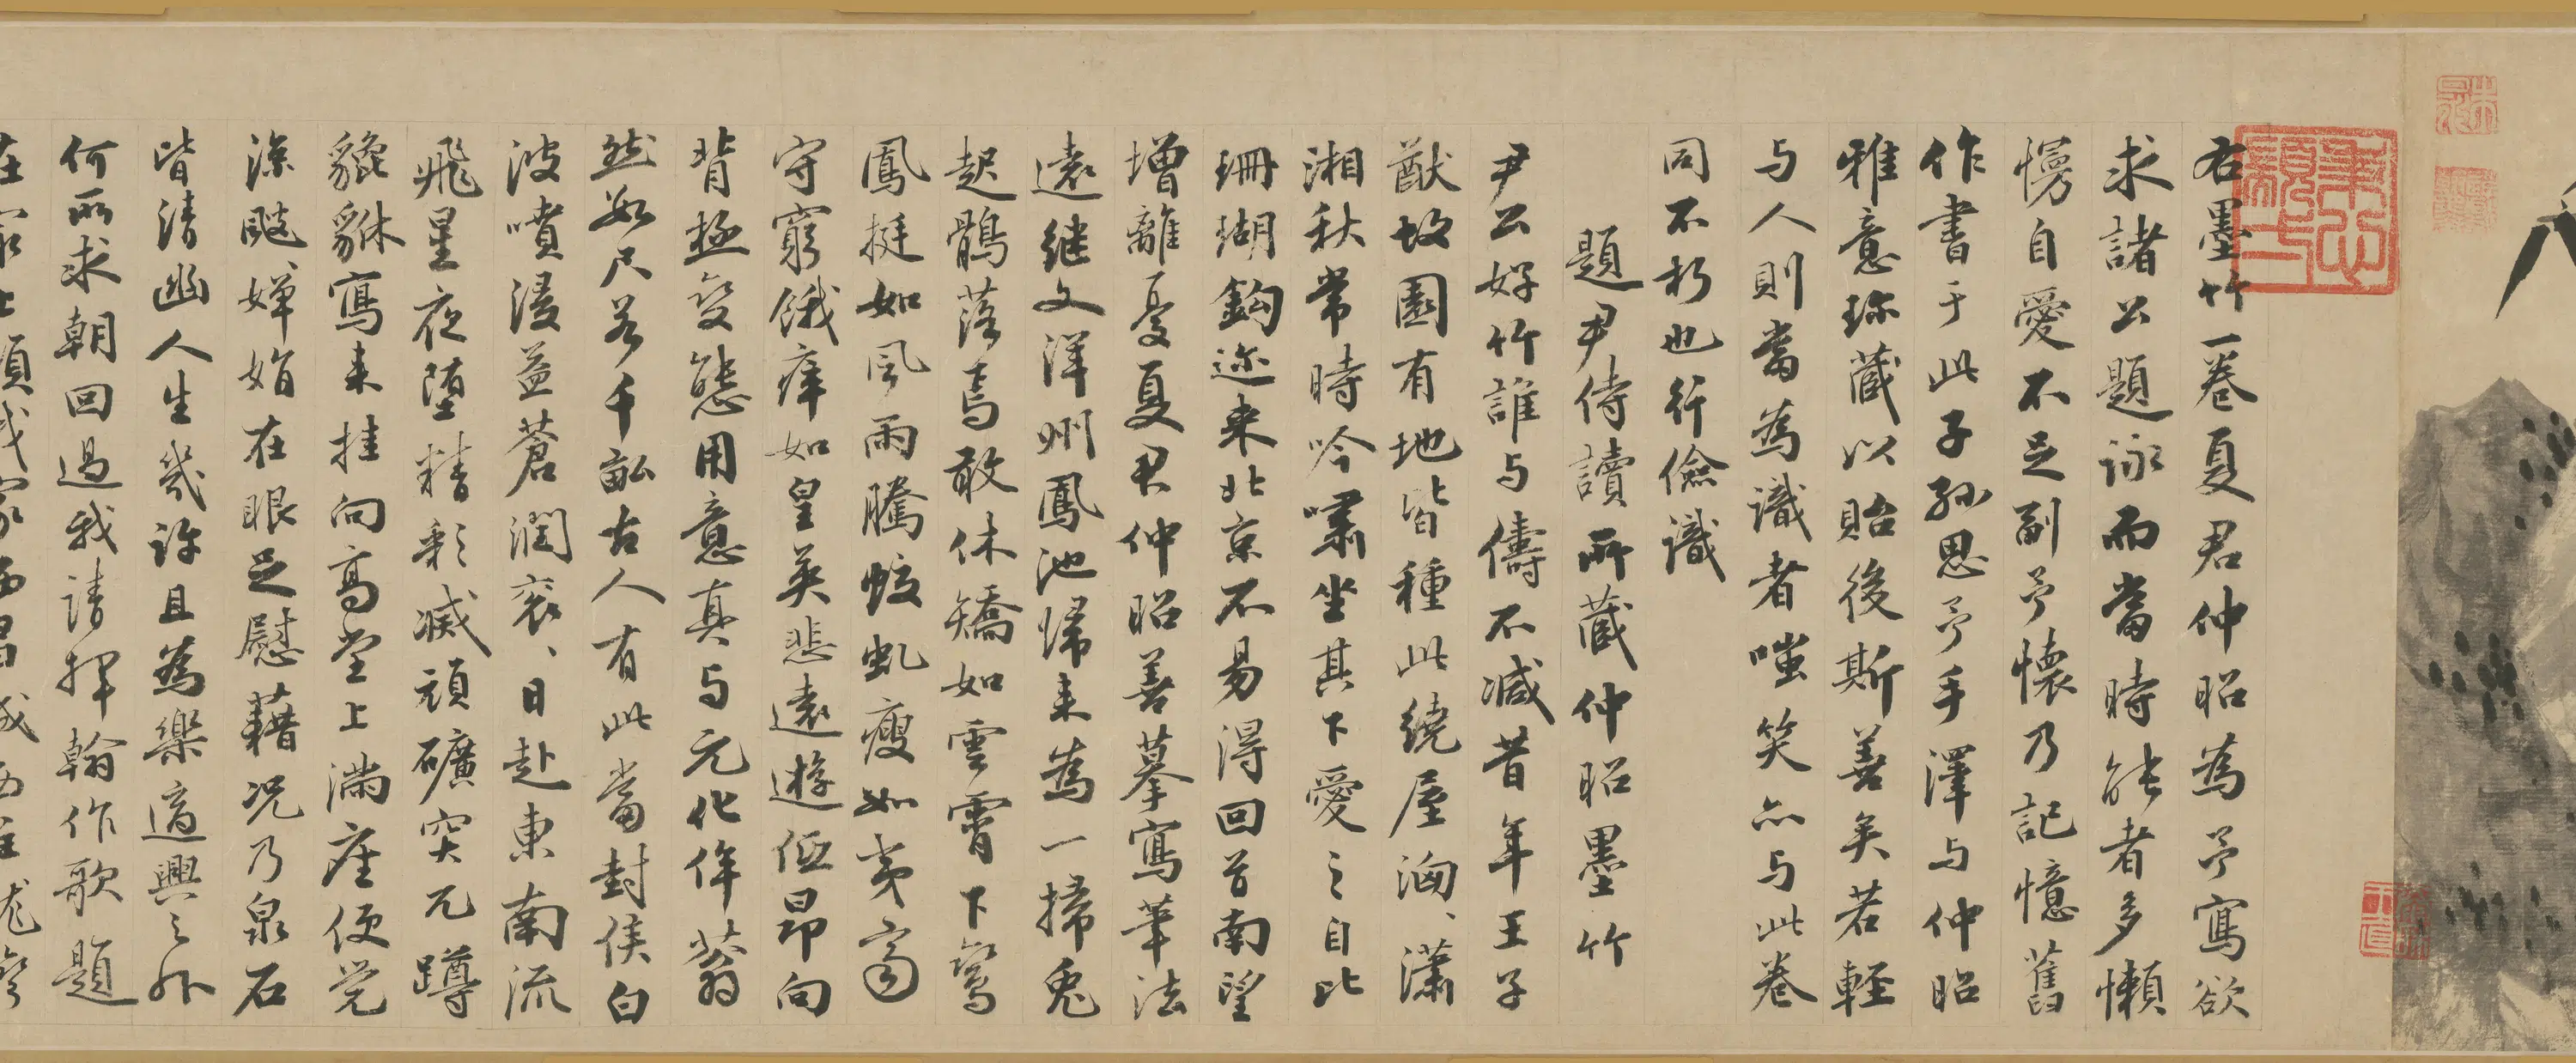 右墨竹一卷夏君仲昭為予寫欲
求諸公題詠而當時能者多懶
慢自愛不足副予懷乃記憶舊
作書于此子孫思予手澤与仲昭
雅意珎藏以貽後斯善矣若輕
与人則當為識者嗤笑点与此卷
同不朽也行儉識
題尹侍讀所藏仲昭墨竹
尹公好竹誰与儔不減昔年王子
猷故園有地皆種此繞屋洶、瀟
湘秋常時吟嘯坐其下愛之自比
珊瑚鈎迩来北京不易得回首南望
增離憂夏君仲昭善摹寫筆法
遠继文洋州鳳池歸来為一掃兎
起鶻落焉敢休矯如雲霄下鸞
鳳挺如風雨騰蛟虬瘦如夷齊
守窮餓痒如皇英悲遠遊低昂向
背極變態用意真与元化侔蓊
然數尺若千畝古人有此當封侯白
波噴浸益蒼潤衮、日赴東南流
飛星夜堕精彩减頑礦突兀蹲
貔貅寫来挂向高堂上滿座便覺
深飈嬋娟在眼足慰藉况乃泉石
皆清幽人生幾許且為樂適興之外
何所求朝回過我請揮翰作歌題